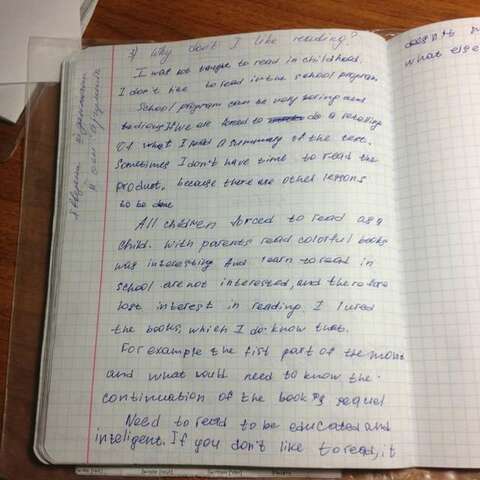 1) Why don't I like reading?
I was not taught to read in childhood.
I don't like to read in the school program.
School program can be very boring and
tedious. If we are forced to do a retelling
of what I read a summary of the text.
Sometimes I don't have time to read the
product, because there are other lessons
to be done
All children forced to read as a
child. With parents read colorful books
was interesting. And learn to read in
school are not interested, and therefore
lost interest in reading. I
the books, which I do know that.
For example the first part of the
and what would need to know the
continuation of the book sequel
Need to read to be educated and
inteligent. If you don't like to read, it
doesn't
what else